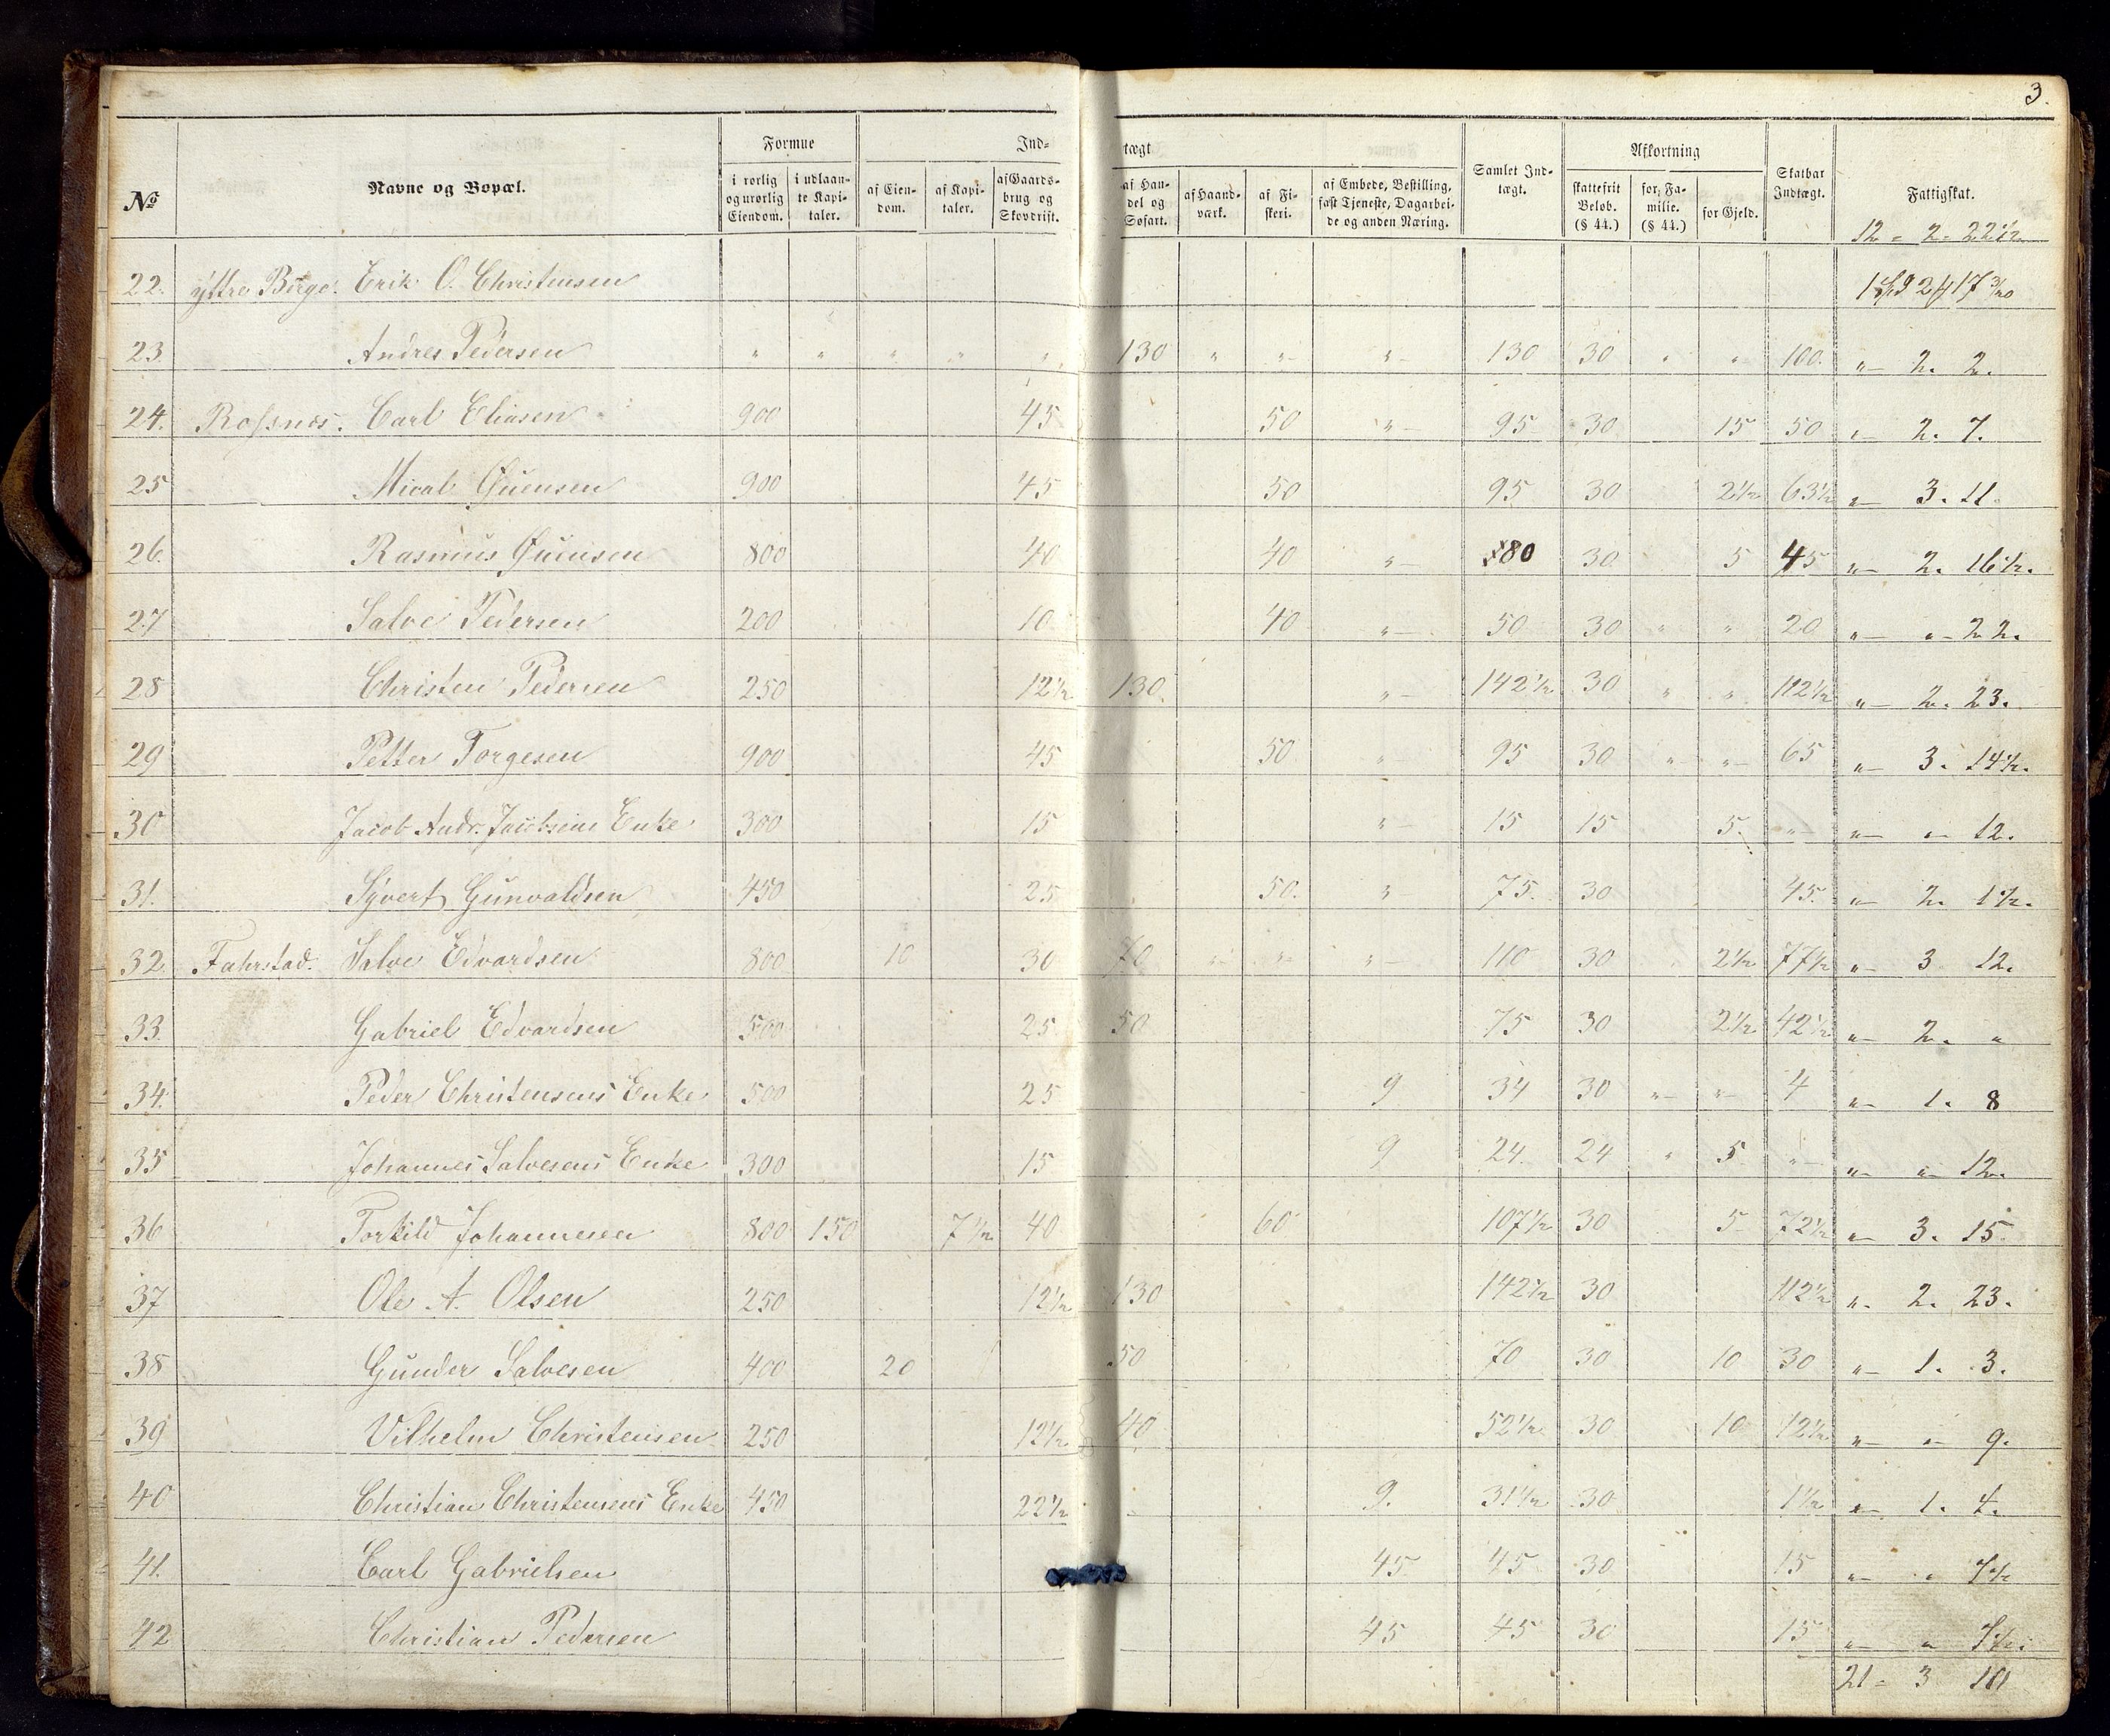 3.
Formue Ind- tægt Afkortning
№ Navne og Bopæl. i rørlig og urørlig Eiendom. i udlaante Kapitaler. af Eiendom. af Kapitaler. af Gaardsbrug og Skovdrift. af Handel og Søfart. af Haandværk. af Fiskeri. af Embede, Bestilling, fast Tjeneste, Dagarbeide og anden Næring. Samlet Indtægt. skattefrit Beløb. (§ 44.) for Familie. (§ 44.) for Gjeld. Skatbar Indtægt. Fattigskat.
12 - 2 - 22 1/2
22. Yttre Börge. Erik O. Christensen 1 Spd 2 # 17 3/20
23. Andres Pedersen " " " " " 130 " " " 130 30 " " 100. " 2. 2.
24. Rossnes. Carl Eliasen 900 45 50 " 95 30 15 50 " 2. 7.
25 Micalb Øuensen 900 45 50 95 30 2 1/2 63 1/2 " 3. 11.
26. Rasmus Øuensen 800 40 40 " 80 30 5 45 " 2. 16 1/2.
27 Salve Pedersen 200 10 40 " 50 30 " " 20 " " 22.
28 Christen Pedersen 250 12 1/2 130 " 142 1/2 30 " " 112 1/2 " 2. 23.
29 Petter Torgesen 900 45 50 " 95 30 " " 65 " 3. 14 1/2.
30 Jacob Andr. Jacobsens Enke 300 15 " 15 15 5. " " " 12.
31. Syvert Gunvaldsen 450 25 50. " 75. 30 45. " 2. 1 1/2.
32. Fahrstad. Salve Edvardsen 800 10 30 70 " " " 110 30 2 1/2 77 1/2 " 3 12.
33. Gabriel Edvardsen 500 25 50 75 30 2 1/2 42 1/2 " 2. "
34. Peder Christensens Enke 500 25 9 34 30 " " 4 " 1. 8
35 Johannes Salvesens Enke 300 15 9 24. 24 " 5 " " " 12.
36 Torkild Johannesen 800 150 7 1/2 40 60 107 1/2 30 5 72 1/2 " 3. 15.
37 Ole A. Olsen 250 12 1/2 130 142 1/2 30 112 1/2 " 2. 23.
38 Gunder Salvesen 400 20 50 70 30 10 30 " 1. 3.
39 Vilhelm Christensen 250 12 1/2 40 52 1/2 30 10 12 1/2 " " 9.
40 Christian Christensens Enke 450 22 1/2 9. 31 1/2 30 1 1/2 " 1. 4.
41. Carl Gabrielsen 45 45 30 15 " " 7 1/2
42 Christian Pedersen 45 45 30 15 " " 7 1/2.
21 - 3 10